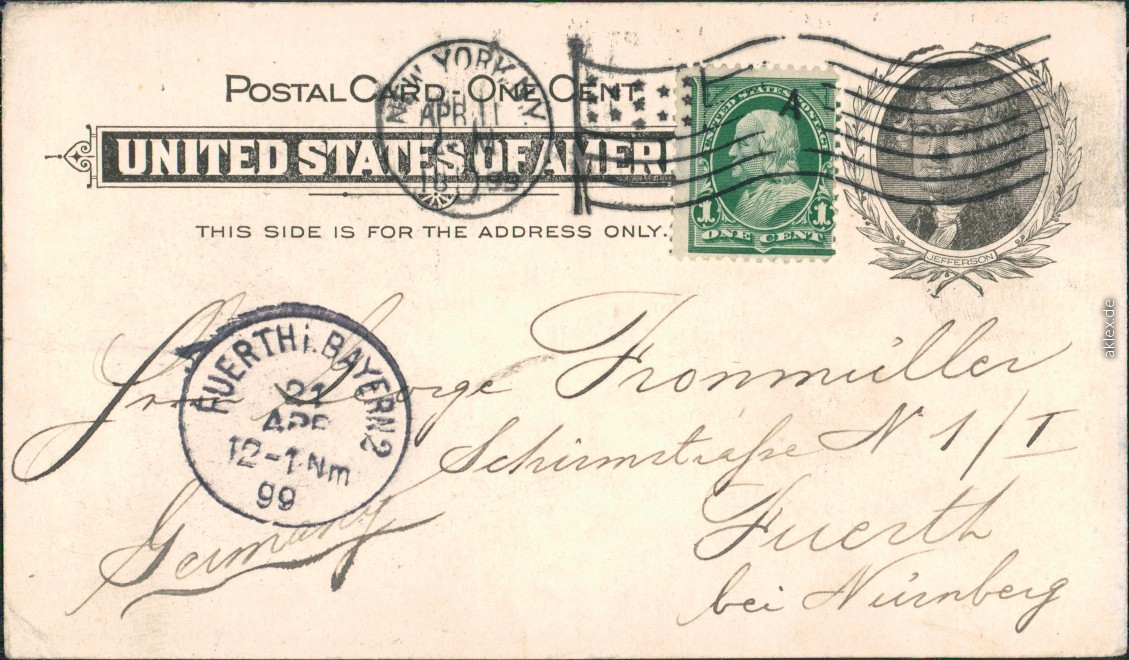 POSTAL CARD - ONE CENT
UNITED STATES OF AMERI
THIS SIDE IS FOR THE ADDRESS ONLY.
NEW YORK, N.Y.
APR 11
99
UNITED STATES POSTAGE
1 1
ONE CENT
JEFFERSON
George Fronmüller
Schirmstraße N 1/I
Fuerth
bei Nürnberg
Germany
FUERTH i. BAYERN 2
21
APR
12-1 Nm
99
aklex.de